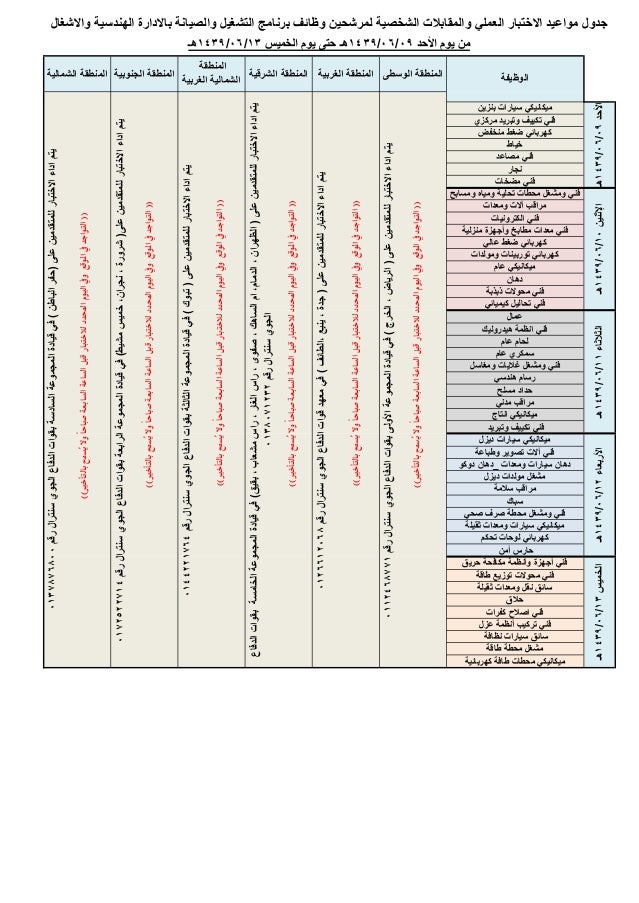 جدول مواعيد الاختبار العملي والمقابلات الشخصية لمرشحين وظائف برنامج التشغيل والصيانة بالادارة الهندسية والاشغال
من يوم الأحد ١٤٣٩/٠٦/٠٩هـ حتى يوم الخميس ١٤٣٩/٠٦/١٣هـ
الوظيفة
المنطقة الوسطى
المنطقة الغربية
المنطقة الشرقية
المنطقة
الشمالية الغربية
المنطقة الجنوبية
المنطقة الشمالية
الأحد ١٤٣٩/٠٦/٠٩هـ
ميكانيكي سيارات بنزين
فني تكييف وتبريد مركزي
كهربائي ضغط منخفض
خياط
فني مصاعد
نجار
فني مضخات
الإثنين ١٤٣٩/٠٦/١٠هـ
فني ومشغل محطات تحلية ومياه ومسابح
مراقب آلات ومعدات
فني الكترونيات
فني معدات مطابخ وأجهزة منزلية
كهربائي ضغط عالي
كهربائي توربينات ومولدات
ميكانيكي عام
دهان
فني محولات ذبذبة
فني تحاليل كيميائي
الثلاثاء ١٤٣٩/٠٦/١١هـ
عمال
فني انظمة هيدروليك
لحام عام
سمكري عام
فني ومشغل غلايات ومغاسل
رسام هندسي
حداد مسلح
مراقب مدني
ميكانيكي انتاج
فني تكييف وتبريد
الاربعاء ١٤٣٩/٠٦/١٢هـ
ميكانيكي سيارات ديزل
فني آلات تصوير وطباعة
دهان سيارات ومعدات _دهان دوكو
مشغل مولدات ديزل
مراقب سلامة
سباك
فني ومشغل محطة صرف صحي
ميكانيكي سيارات ومعدات ثقيلة
كهربائي لوحات تحكم
حارس أمن
الخميس ١٤٣٩/٠٦/١٣هـ
فني أجهزة وانظمة مكافحة حريق
فني محولات توزيع طاقة
سائق نقل ومعدات ثقيلة
حلاق
فني اصلاح كفرات
فني تركيب أنظمة عزل
سائق سيارات نظافة
مشغل محطة طاقة
ميكانيكي محطات طاقة كهربائية
يتم اداء الاختبار للمتقدمين على ( الرياض ، الخرج ) في قيادة المجموعة الأولى بقوات الدفاع الجوي سنترال رقم ٠١١٢٤٦٨٧٧١
(( التواجد في الموقع وفي اليوم المحدد للاختبار قبل الساعة السابعة صباحاً ولا يُسمح بالتأخير))
يتم اداء الاختبار للمتقدمين على ( جدة ، ينبع ،الطائف ) في معهد قوات الدفاع الجوي سنترال رقم ٠١٢٦٦١٢٠٦٨
(( التواجد في الموقع وفي اليوم المحدد للاختبار قبل الساعة السابعة صباحاً ولا يُسمح بالتأخير))
يتم اداء الاختبار للمتقدمين على ( الظهران ، الدمام، ام الساهك ، صفوى ، راس الغار ، راس مشعاب ، بقيق) في قيادة المجموعة الخامسة بقوات الدفاع
الجوي سنترال رقم ٠١٣٨٠٧١٢٣٢
(( التواجد في الموقع وفي اليوم المحدد للاختبار قبل الساعة السابعة صباحاً ولا يُسمح بالتأخير))
يتم اداء الاختبار للمتقدمين على ( تبوك ) في قيادة المجموعة الثالثة بقوات الدفاع الجوي سنترال رقم ٠١٤٤٢٢١٧٦٤
(( التواجد في الموقع وفي اليوم المحدد للاختبار قبل الساعة السابعة صباحاً ولا يُسمح بالتأخير))
يتم اداء الاختبار للمتقدمين على( شرورة ، نجران، خميس مشيط) في قيادة المجموعة الرابعة بقوات الدفاع الجوي سنترال رقم ٠١٧٢٥٢٢٧١٤
(( التواجد في الموقع وفي اليوم المحدد للاختبار قبل الساعة السابعة صباحاً ولا يُسمح بالتأخير))
يتم اداء الاختبار للمتقدمين على (حفر الباطن ) في قيادة المجموعة السادسة بقوات الدفاع الجوي سنترال رقم ٠١٣٧٨٧٦٨٠٠
(( التواجد في الموقع وفي اليوم المحدد للاختبار قبل الساعة السابعة صباحاً ولا يُسمح بالتأخير))